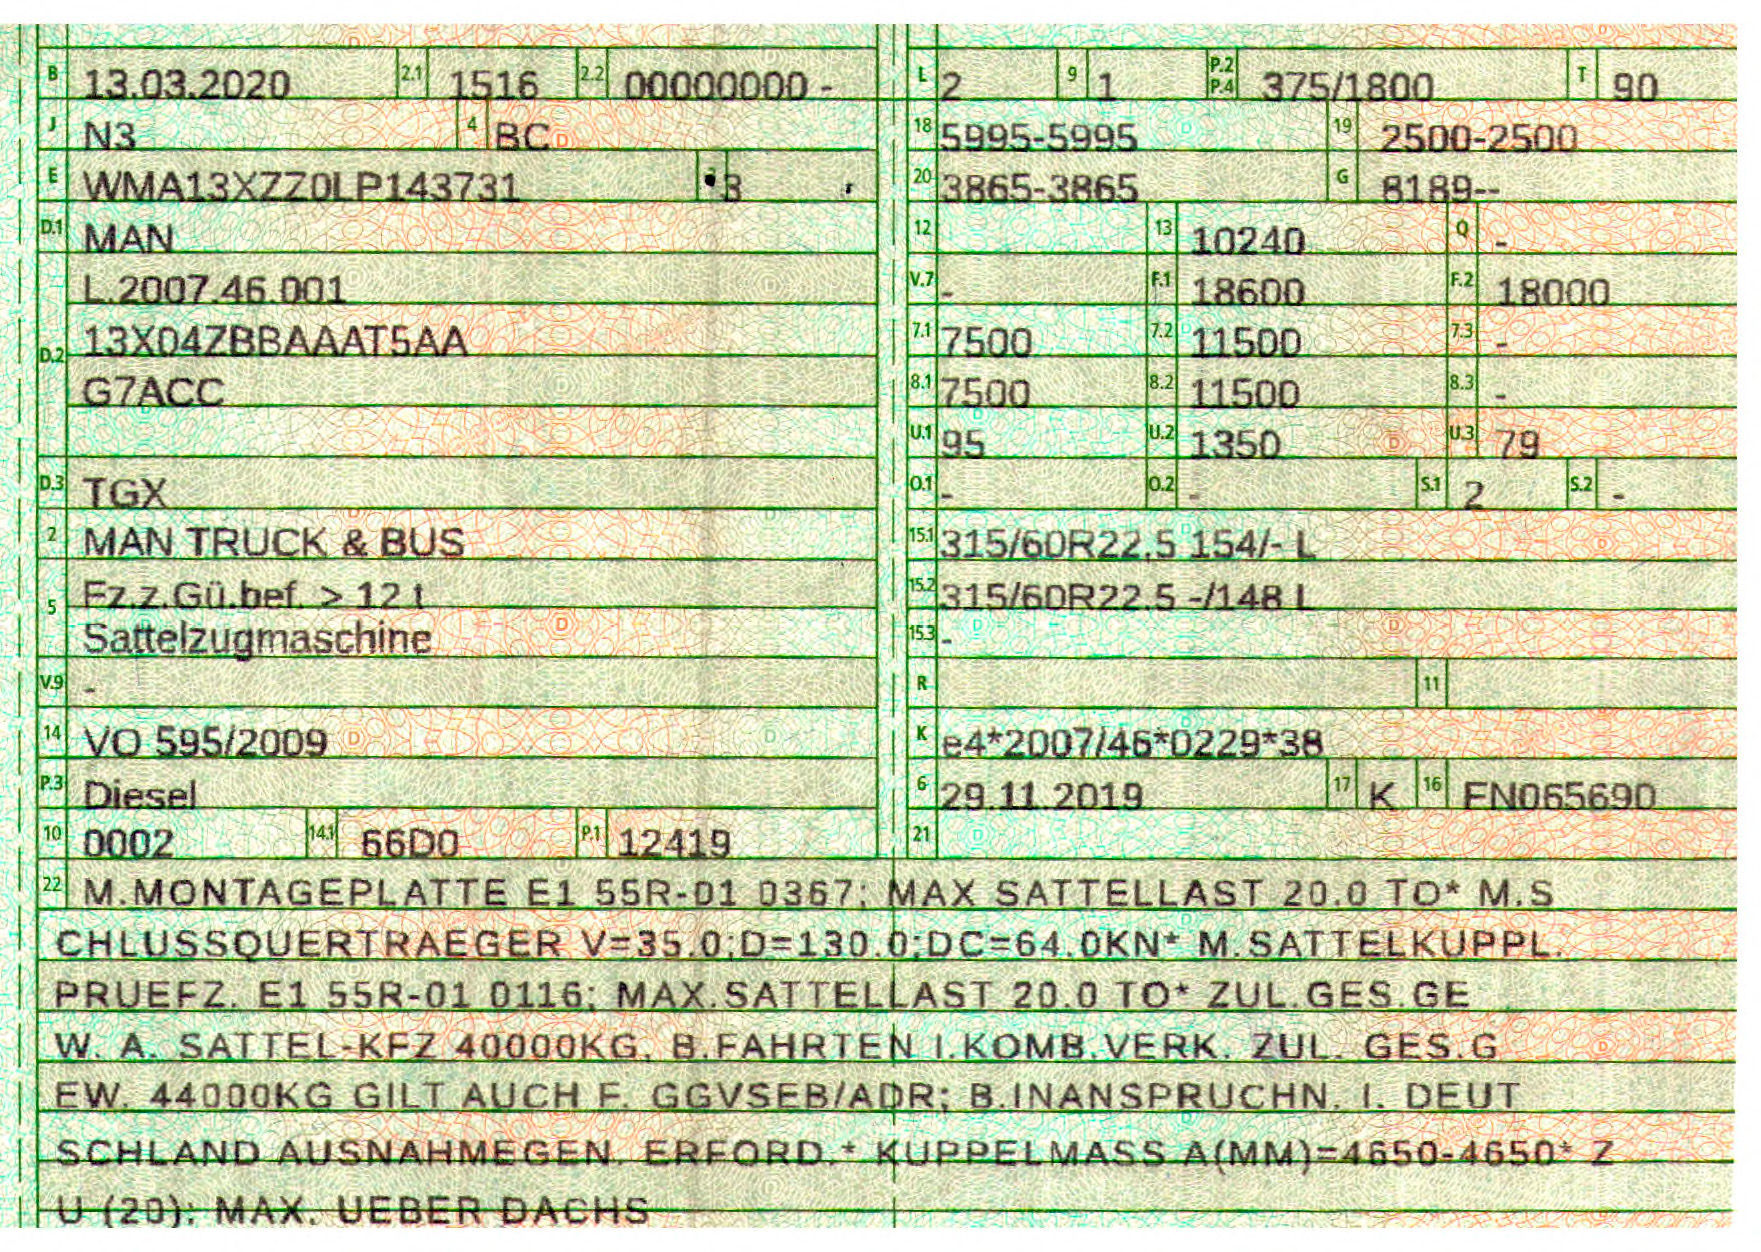 B 13.03.2020 2.1 1516 2.2 00000000 -
J N3 4 BC
E WMA13XZZ0LP143731 3
D.1 MAN
L.2007.46.001
D.2 13X04ZBBAAAT5AA
G7ACC
D.3 TGX
2 MAN TRUCK & BUS
5 Fz.z.Gü.bef. > 12 t
Sattelzugmaschine
V.9 -
14 VO 595/2009
P.3 Diesel
10 0002 14.1 66D0 P.1 12419
L 2 9 1 P.2 P.4 375/1800 T 90
18 5995-5995 19 2500-2500
20 3865-3865 G 8189--
12 13 10240 Q -
V.7 - F.1 18600 F.2 18000
7.1 7500 7.2 11500 7.3 -
8.1 7500 8.2 11500 8.3 -
U.1 95 U.2 1350 U.3 79
O.1 - O.2 - S.1 2 S.2 -
15.1 315/60R22.5 154/- L
15.2 315/60R22.5 -/148 L
15.3 -
R 11
K e4*2007/46*0229*38
6 29.11.2019 17 K 16 FN065690
21
22 M.MONTAGEPLATTE E1 55R-01 0367; MAX SATTELLAST 20.0 TO* M.S
CHLUSSQUERTRAEGER V=35.0;D=130.0;DC=64.0KN* M.SATTELKUPPL.
PRUEFZ. E1 55R-01 0116; MAX.SATTELLAST 20.0 TO* ZUL.GES.GE
W. A. SATTEL-KFZ 40000KG, B.FAHRTEN I.KOMB.VERK. ZUL. GES.G
EW. 44000KG GILT AUCH F. GGVSEB/ADR; B.INANSPRUCHN. I. DEUT
SCHLAND AUSNAHMEGEN. ERFORD.* KUPPELMASS A(MM)=4650-4650* Z
U (20): MAX. UEBER DACHS